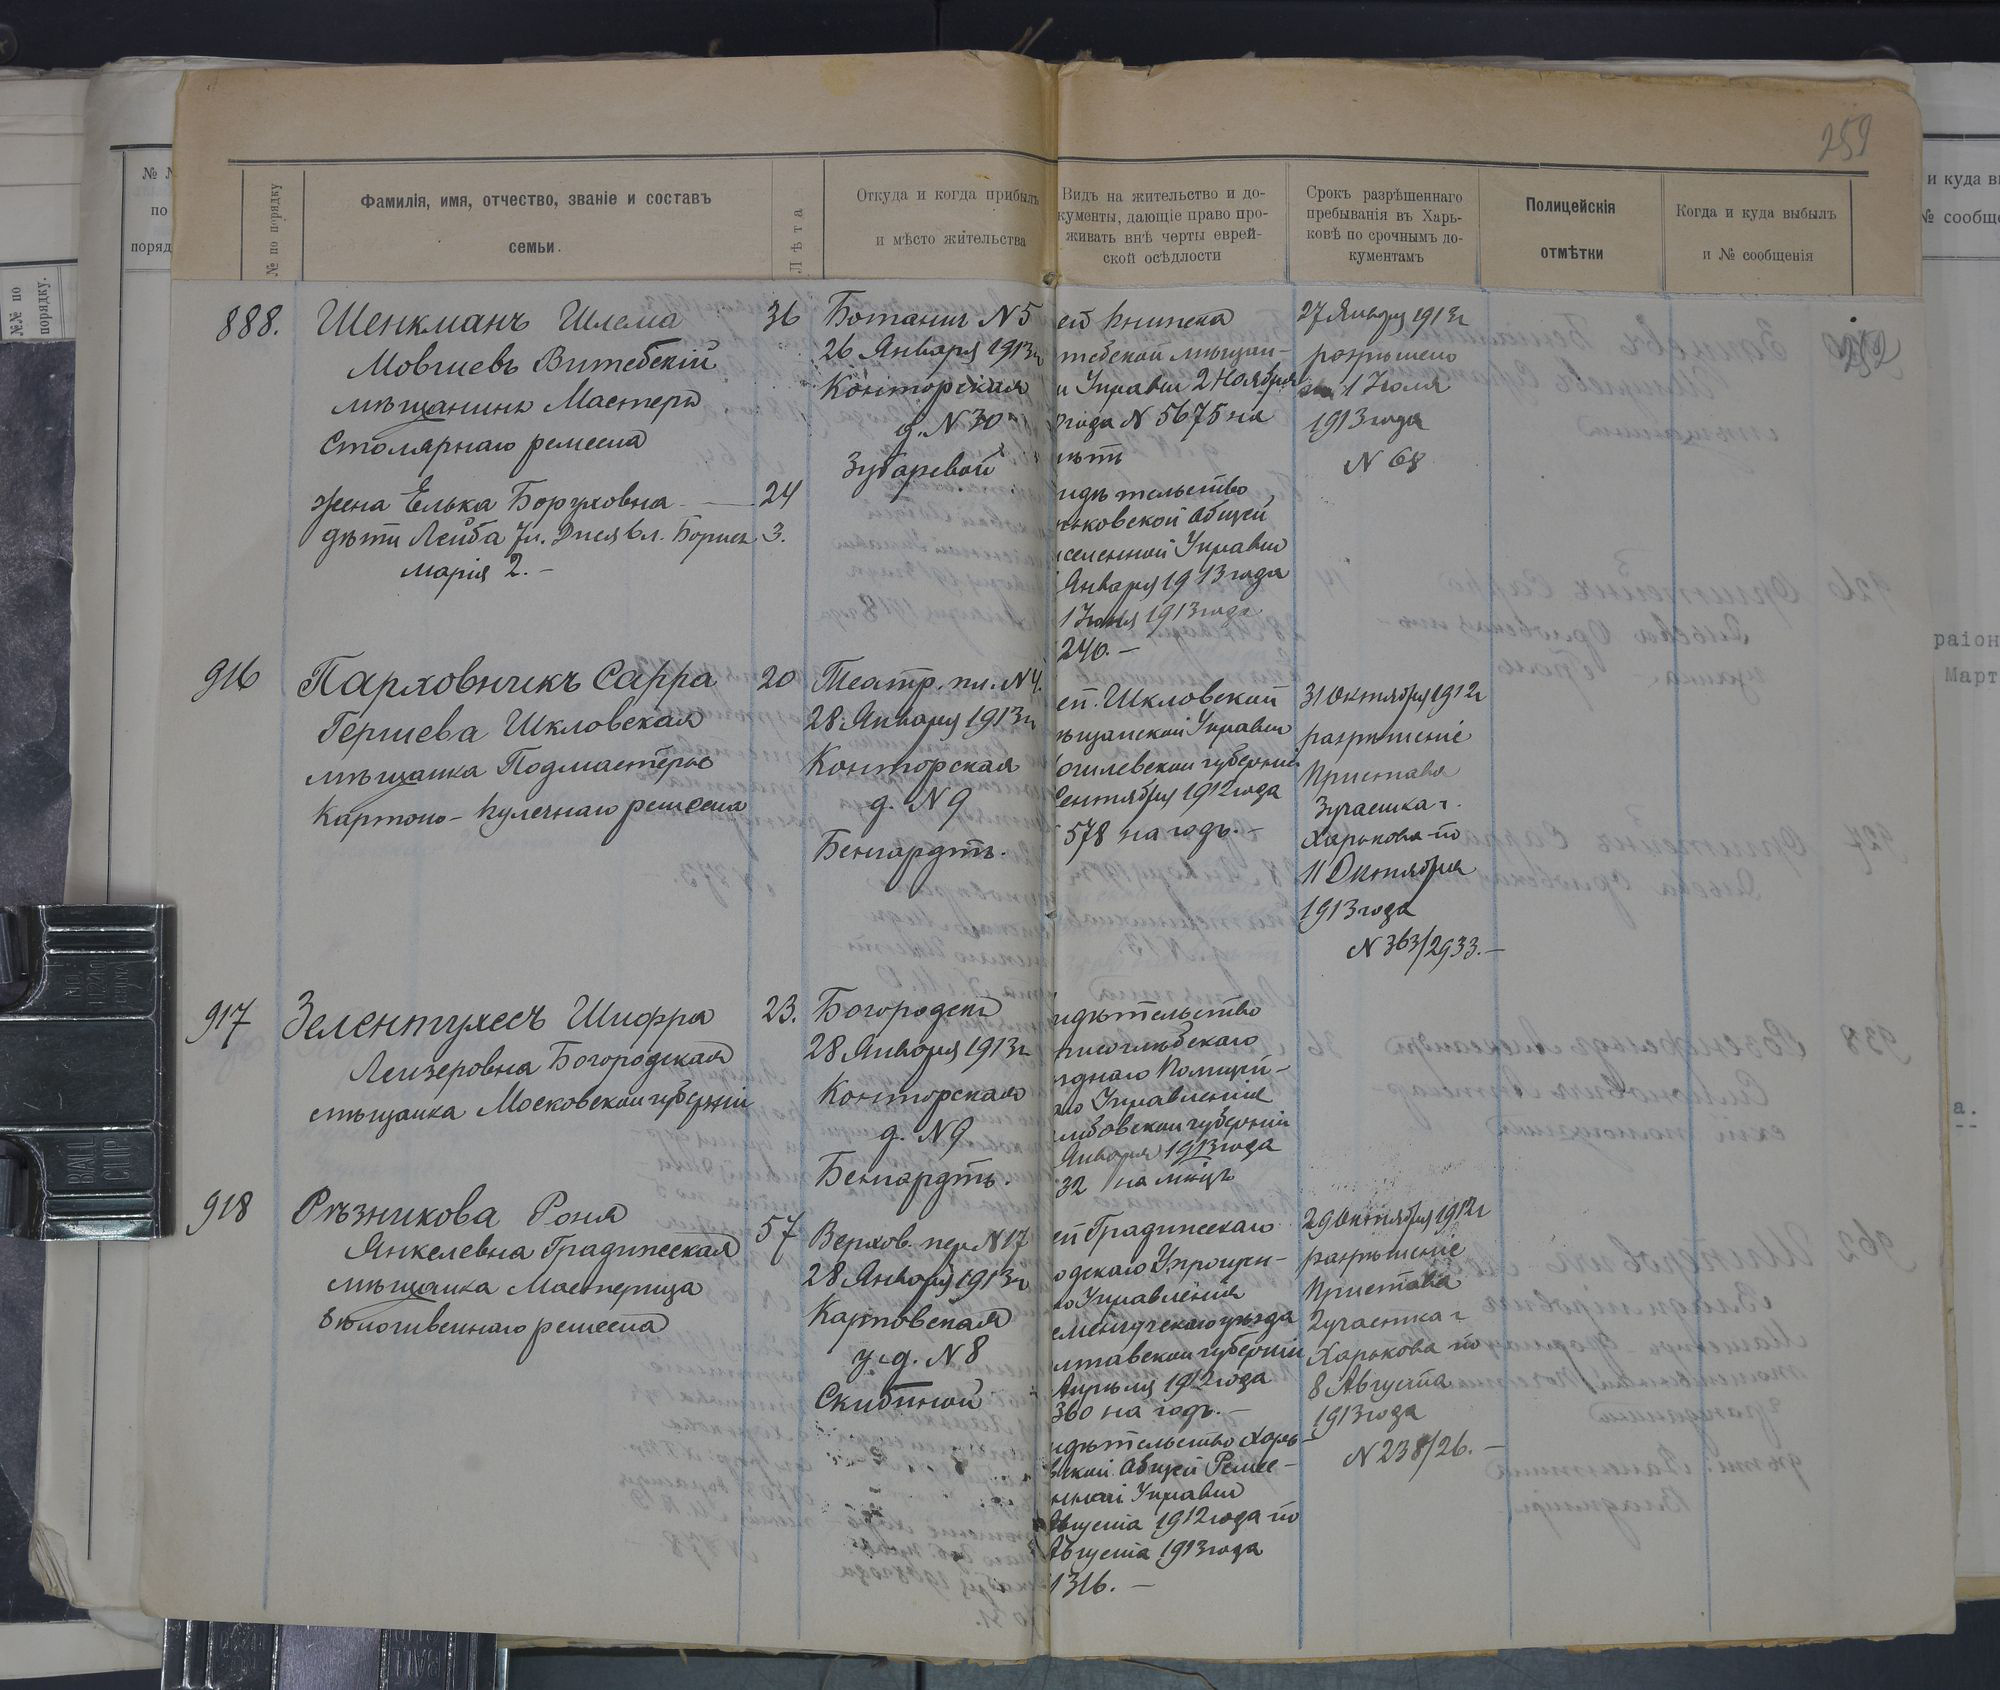 259
№ по порядку
Фамилія, имя, отчество, званіе и составъ
семьи.
Лѣта
Откуда и когда прибылъ
и мѣсто жительства
Видъ на жительство и до-
кументы, дающіе право про-
живать внѣ черты еврей-
ской осѣдлости
Срокъ разрѣшеннаго
пребыванія въ Харь-
ковѣ по срочнымъ до-
кументамъ
Полицейскія
отмѣтки
Когда и куда выбылъ
и № сообщенія
888.
Шенкманъ Шлема
Мовшевъ Витебскій
мѣщанинъ Мастеръ
столярнаго ремесла
жена Елька Боруховна
дѣти Лейба 7л. Дися 6л. Борисъ
Марія 2. —
36
24
3.
Ботанич N 5
26 Января 1913г
Конторская
д. N 30
Зубаревой
ей книжка
тебской мѣщан-
и Управы 2 Ноября
года N 5675 на
лѣтъ
идѣтельство
ьковской Общей
сленной Управы
Января 1913 года
1 Іюля 1913 года
240. —
27 Января 1913г
разрѣшено
1 Іюля
1913 года
N 68
916
Парховникъ Сарра
Гершева Шкловская
мѣщанка Подмастерье
Картоно-кулечнаго ремесла
20
Театр. пл. N 4.
28 Января 1913г
Конторская
д. N 9
Бенгардтъ.
ей Шкловской
ѣщанской Управы
огилевской губерніи
Сентября 1912 года
578 на годъ. —
31 Октября 1912г
разрѣшеніе
Пристава
3 участка г.
Харькова по
11 Октября
1913 года
N 363/2933. —
917
Зелентухесъ Шифра
Лейзеровна Богородская
мѣщанка Московской губерніи
23.
Богородскъ
28 Января 1913г
Конторская
д. N 9
Бенгардтъ.
идѣтельство
рисоглѣбскаго
зднаго Полицей-
аго Управленія
амбовской губерніи
Января 1913 года
32 на мѣсцъ
918
Рѣзникова Роня
Янкелевна Градижская
мѣщанка Мастерица
бѣлошвейнаго ремесла
57
Верхов. пер. N 17
28 Января 1913г
Карповская
у. д. N 8
Скибиной
ей Градижскаго
одскаго Упрощен-
го Управленія
еменчугскаго уѣзда
лтавской губерніи
Апрѣля 1912 года
360 на годъ. —
идѣтельство Харь-
вской Общей Ремес-
Управы
Августа 1912 года по
Августа 1913 года
1316. —
29 Октября 1912г
разрѣшеніе
Пристава
2 участка г
Харькова по
8 Августа
1913 года
N 238/26. —
раіон
Март